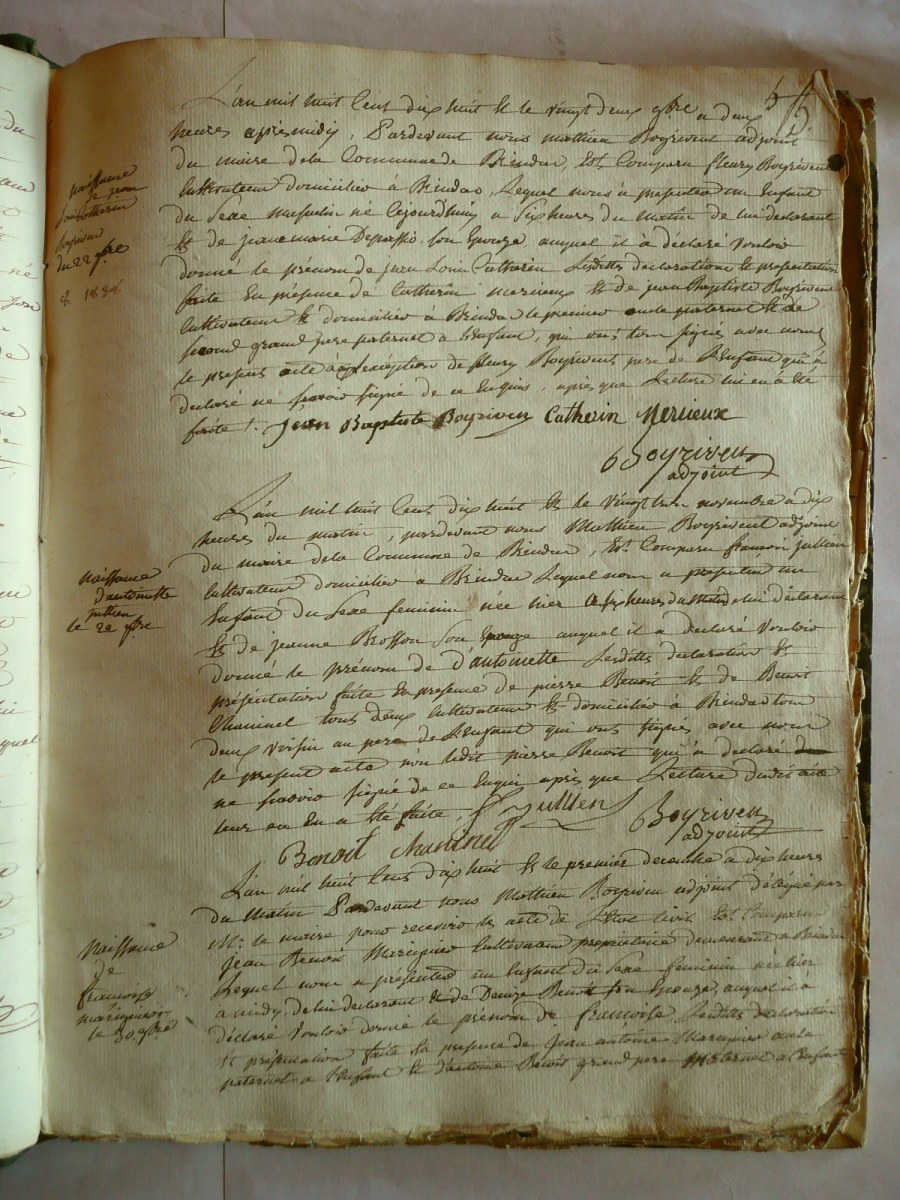 L'an mil huit cent dix huit et le vingt deux 9bre a deux
heures après midy, Pardevant nous mathieu Boyrivent adjoint
du maire dela Commune de Brindas, Est Comparu fleury Boyrivent
Cultivateur domicilié à Brindas, Lequel nous à présenté un Enfant
du Sexe masculin né Cejourdhuy a Six heures du matin de lui déclarant
Et de jeanne marie Depassio, son Epouze auquel il à déclaré vouloir
donné le prénom de jean Louis Catherin Lesdittes declarations Et presentation
faite En présence de Catherin merieux Et de jean Baptiste Boyrivent
Cultivateur Et domicilié a Brindas le premier oncle paternel Et le
second grand pere paternel a L'Enfant, qui ont signés avec nous
le present acte à l'exception de fleury Boyrivent pere de L'Enfant qui à
declaré ne savoir signé de ce Enquis, après que Lecture lui en à été
faite !. jean Baptiste Boyriven Catherin Merieux
Boyriven
adjoint
naissance
de jean
Louis Catherin
boyriven
du 22 9bre
L'an mil huit Cent dix huit Et le vingt trois novembre a dix
heures du matin, pardevant nous Mathieu Boyrivent adjoint
du maire dela Commune de Brindas, Est Comparu françois jullien
Cultivateur domicilié a Brindas Lequel nous a présenté un
Enfant du Sexe feminin née hier a six heures du matin de lui déclarant
Et de jeanne Brosson son Epouze auquel il a declaré vouloir
donné le prénom de d'antoinette Lesdittes declaration Et
présentation faite En presence de pierre Benoit Et de Benoit
Chaninel tous deux Cultivateur Et domicilié à Brindas tous
deux voisin au pere de L'Enfant qui ont signés avec nous
le present acte non ledit pierre Benoit qui à declaré
ne savoir signé de ce Enquis après que Lecture dudit acte
leur en En a Eté faite, f Jullien Boyriven
adjoint
Benoit chaninel
naissance
d'antoinette
jullien
le 22 9bre
L'an mil huit Cent dix huit Et le premier decembre a dix heures
du matin Pardevant nous Mathieu Boyriven adjoint délégué par
Mr. le maire pour recevoir les acte de L'Etat Civil Est Comparu
jean Benoit Marignier Cultivateur propriétaire demeurant a Brindas
Lequel nous a présenté un Enfant du Sexe feminin née hier
a midy de lui declarant Et de Denize Benoit son Epouze, auquel il à
déclaré vouloir donné le prénom de francoise Lesdittes declaration
Et présentation faite En presence de jean antoine Marignier oncle
paternel a l'Enfant Et d'antoine Benoit grand pere maternel a L'enfant
Naissance
de
francoise
marignier
le 30 9bre